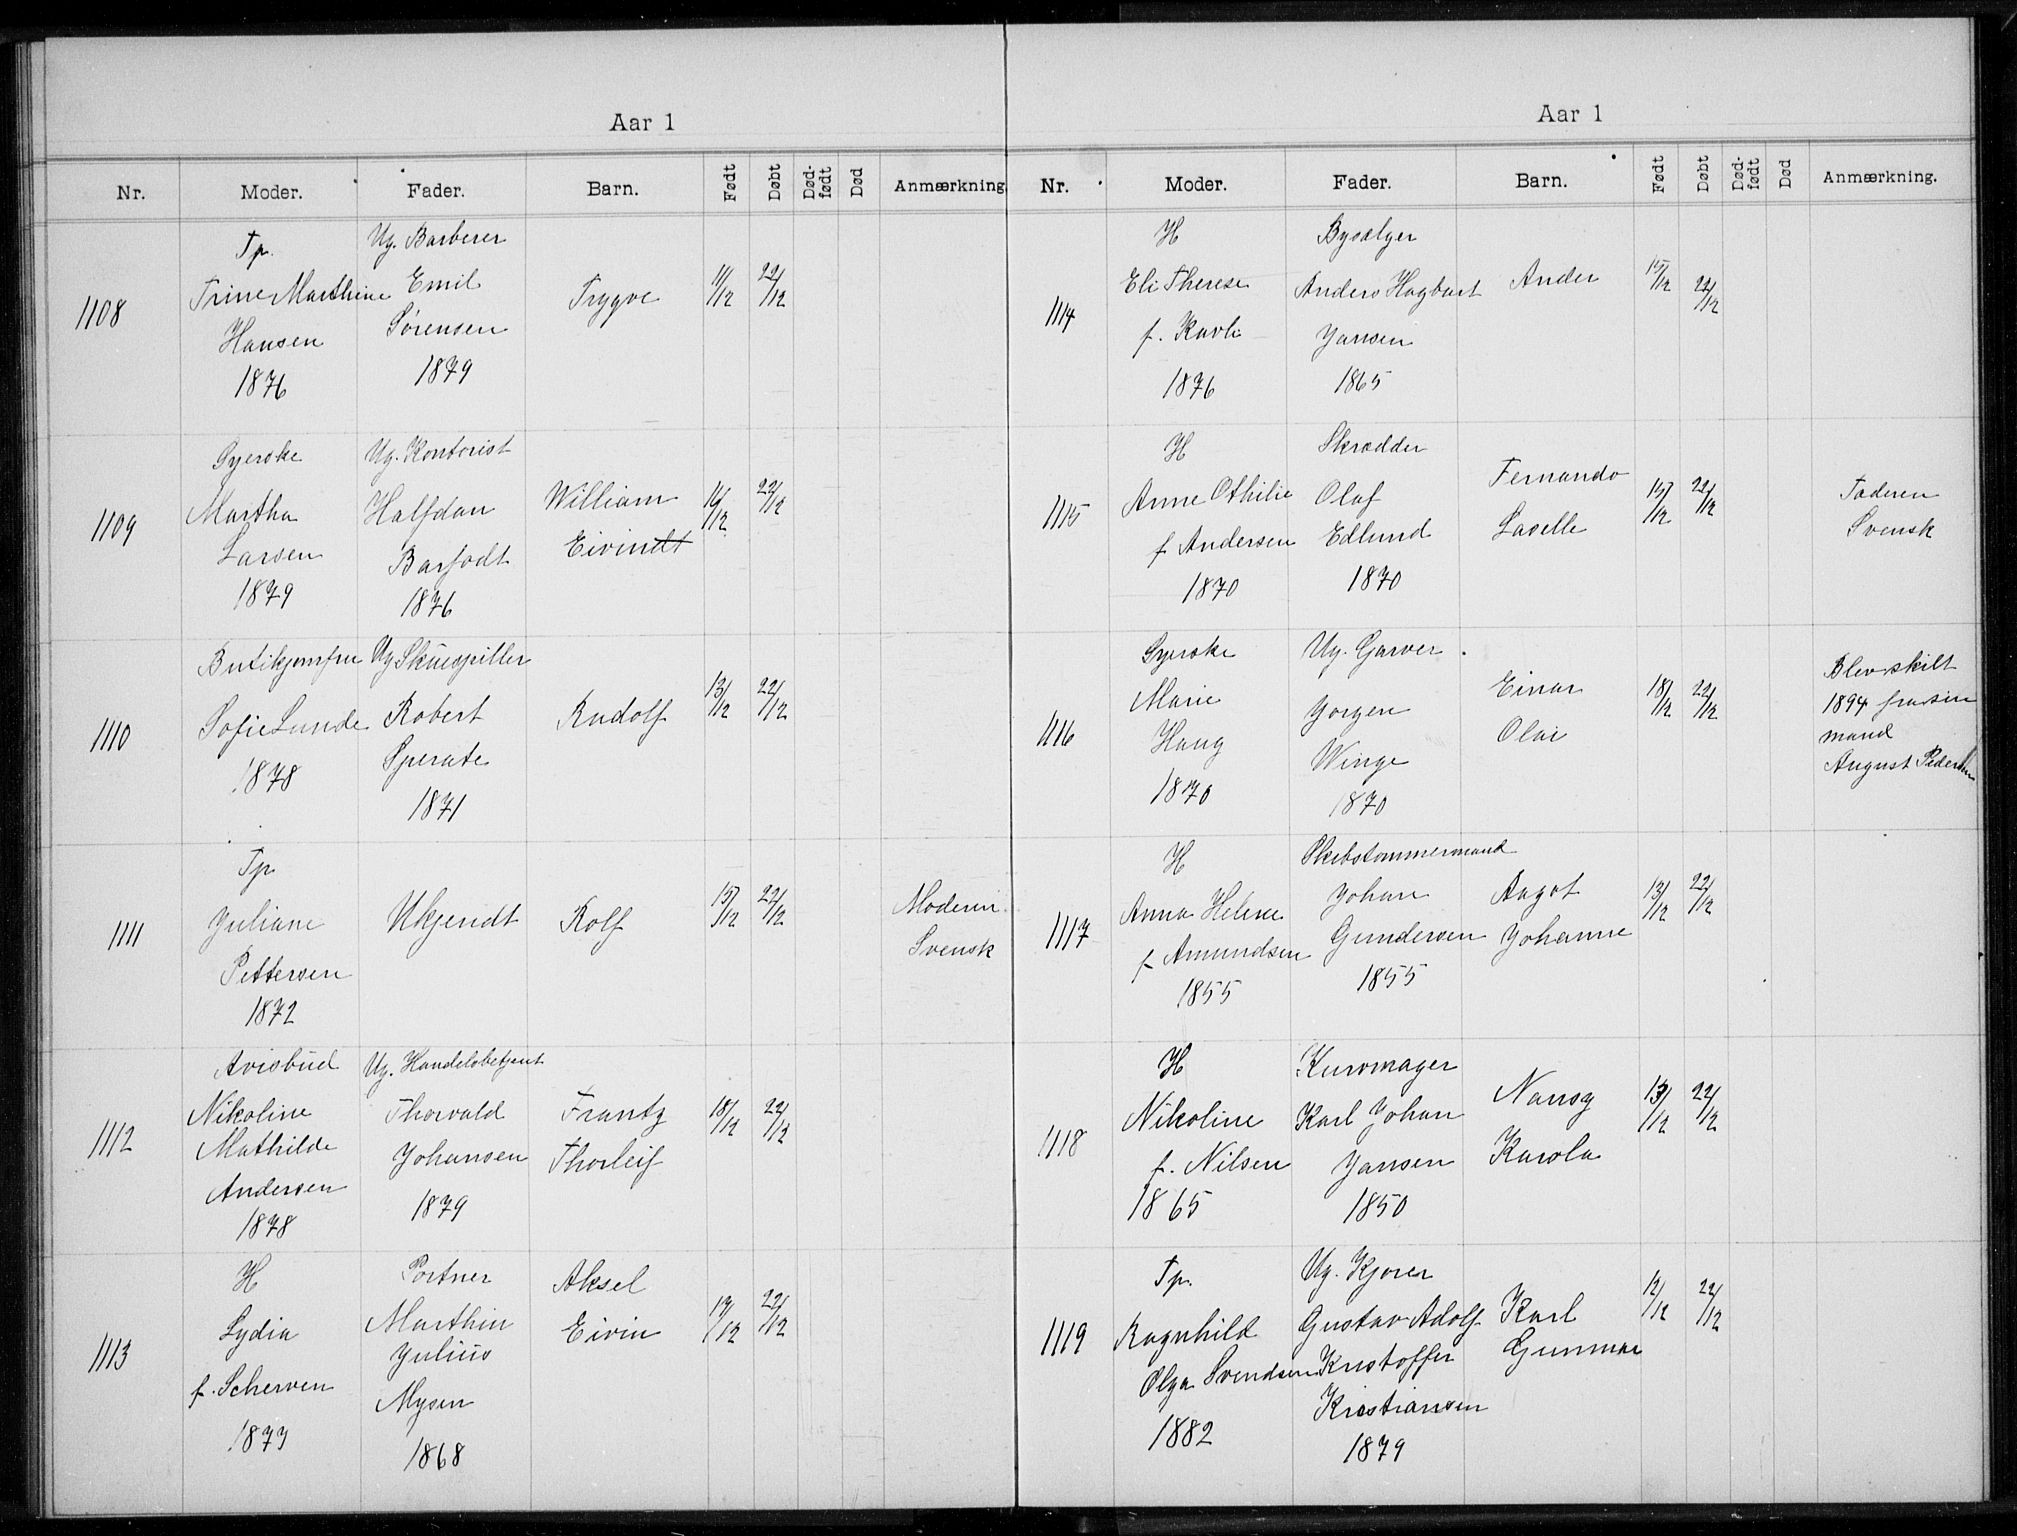 Aar 1
Nr. Moder. Fader. Barn. Født Døbt Død-født Død Anmærkning
1108
Tp.
Trine Marthine
Hansen
1876
Ug. Barberer
Emil
Sørensen
1879
Trygve
11/12 22/12
1109
Syerske
Martha
Larsen
1879
Ug. Kontorist
Halfdan
Barfodt
1876
William
Eivindt
16/12 22/12
1110
Butikjomfru
Sofie Lunde
1878
Ug Skuespiller
Robert
Sperate
1871
Rudolf
13/12 22/12
1111
Tp
Juliane
Pettersen
1872
Ukjendt
Rolf
15/12 22/12
Moderen
Svensk
1112
Avisbud
Nikoline
Mathilde
Andersen
1878
Ug. Handelsbetjent
Thorvald
Johansen
1879
Frantz
Thorleif
18/12 22/12
1113
H
Lydia
f. Scherven
1873
Portner
Marthin
Julius
Mysen
1868
Aksel
Eivin
17/12 22/12
Aar 1
Nr. Moder. Fader. Barn. Født Døbt Død-født Død Anmærkning.
1114
H
Eli Therese
f. Kavli
1876
Bysælger
Anders Hagbart
Jansen
1865
Ander
15/12 22/12
1115
H
Anne Othilie
f Andersen
1870
Skrædder
Olaf
Edlund
1870
Fernando
Laselle
15/12 22/12
Faderen
Svensk
1116
Syerske
Marie
Haug
1870
Ug. Garver
Jørgen
Winge
1870
Einar
Olai
18/12 22/12
Blev skilt
1894 fra sin
mand
August Pedersen
1117
H
Anna Helene
f Amundsen
1855
Skibstømmermand
Johan
Gundersen
1855
Aagot
Johanne
13/12 22/12
1118
H
Nikoline
f. Nilsen
1865
Kurvmager
Karl Johan
Jansen
1850
Nansy
Karola
13/12 22/12
1119
Tp.
Ragnhild
Olga Svendsen
1882
Ug. Kjører
Gustav Adolf
Kristoffer
Kristiansen
1879
Karl
Gunnar
12/12 22/12